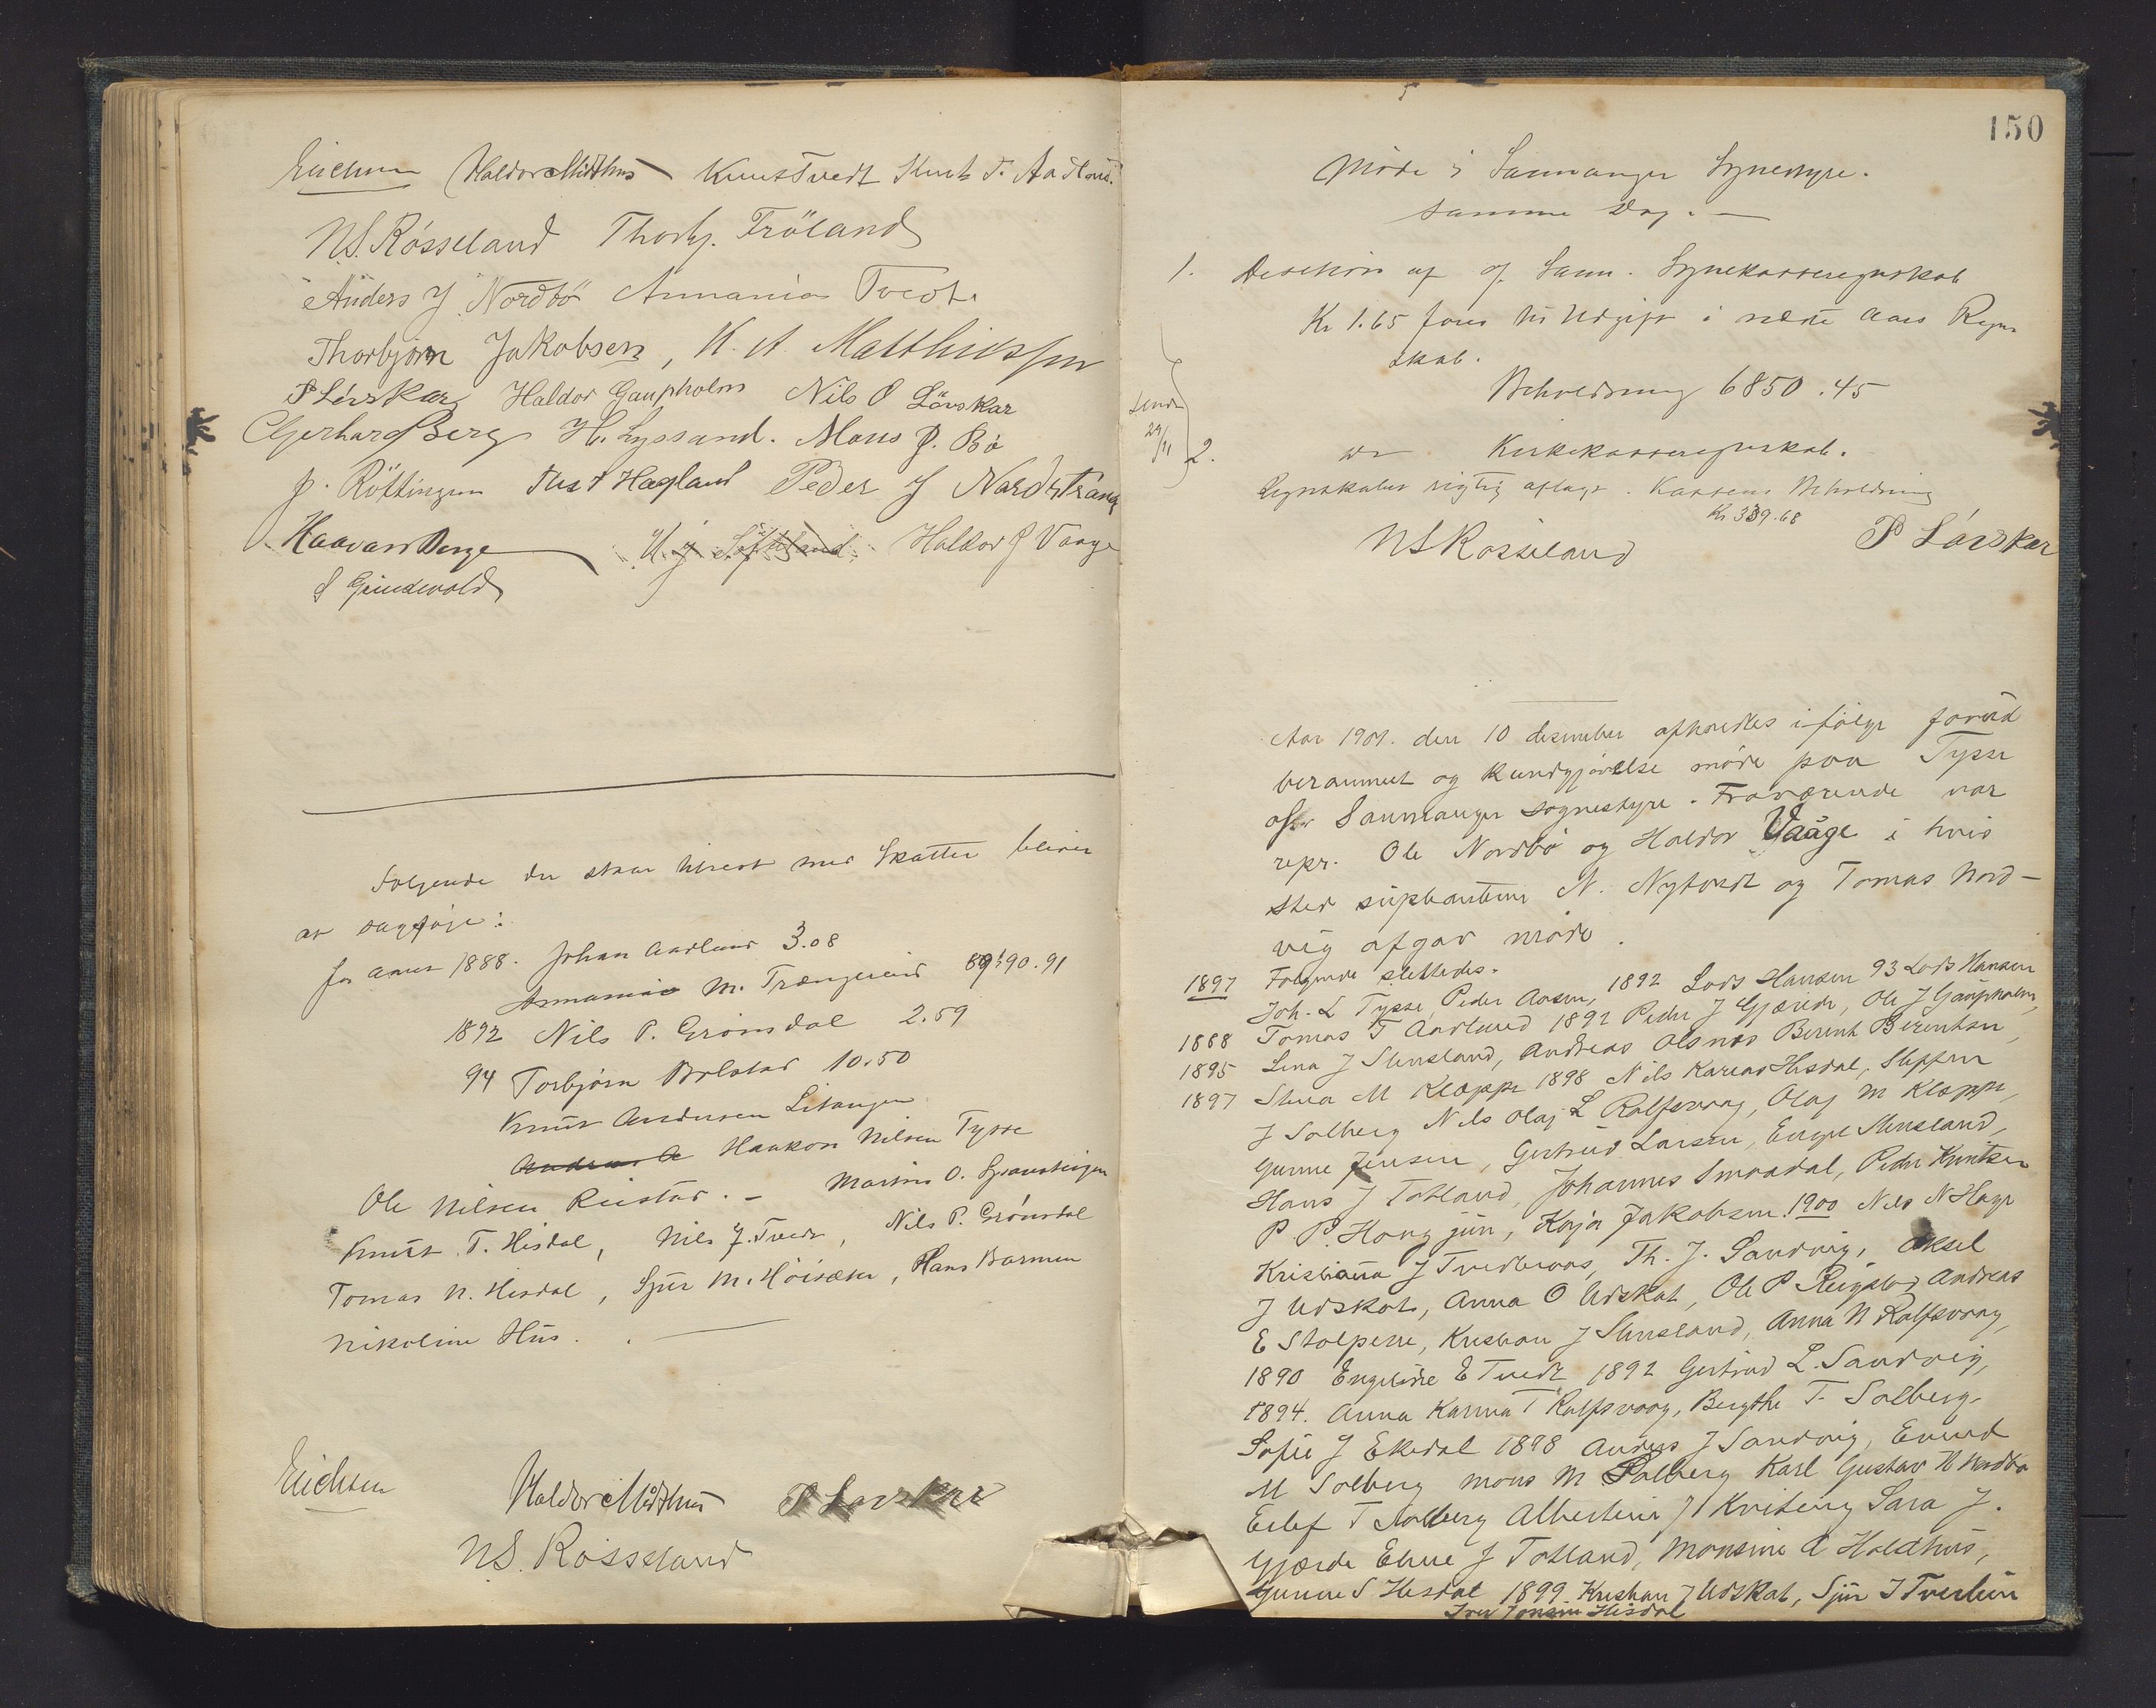 Erichsen Haldor Midthus Knut Tvedt Knut T. Aadland.
N.S. Røsseland Thorbj. Fröland
Anders J Nordbö Annanias Tvedt.
Thorbjørn Jakobsen, K. A. Matthiessen
P Lövskar Haldor Gaupholm Nils O Lövskar
Gerhard Berg H. Lyssand. Mons P. Bö
J. Röttingen Hagland Peder J Nordstrand
Haavard Berge Haldor J Vaage
S Grindevold
Følgende der staar til rest med Skatter bliver
at
for Aaret 1888. Johan Aadland 3.08
Annanias M. Trængereid 90.91
1892 Nils P. Grönsdal 2.59
94 Torbjørn Bolstad 10.50
Knut Andersen
Haakon Nilsen Tysse
Ole Nilsen Reistad. - Martin O.
Knut T. Hisdal, Nils J. Tvedt, Nils P. Grönsdal
Tomas N. Hisdal, Sjur M. Höisæter, Hans Barmen
Nikoline Hus.
Erichsen Haldor Midthus P Lövskar
N.S. Røsseland
150
Møde i Samnanger Sognestyre.
Samme Dag. -
1. Decision af Samn. Skolekasseregnskab
Kr 1.65 føres til Udgift i næste Aars Regn
skab.
Beholdning 6850.45
Sendt
29/11
2. Kirkekasseregnskab.
Regnskabet rigtig aflagt. Kassens Beholdning
Kr 339.68
N S Røsseland P Lövskar
Aar 1901. den 10 desember afholdtes ifølge forud
berammet og kundgjørelse møde paa Tysse
af Samnanger sognestyre. Fraværende var
repr. Ole Nordbö og Haldor Vaage i hvis
sted supleanterne N. Nytvedt og Tomas Nord-
vig afgav møde.
1897 Følgende slettedes.
Joh. L Tysse, Peder Aasen, 1892 Lars Hansen 93 Lars Hansen
1888 Tomas T Aadland 1892 Peder J Gjærde, Ole J Gaupholm,
1895 Lina J Stensland, Andreas Olsnes Berent Berentsen,
1897 Stina M Kleppe 1898 Nils Hisdal, Steffen
J Solberg Nils Olaj L Rolfsvaag, Olaj M Kleppe,
Gunne Jensen, Gertrud Larsen, Stensland,
Hans J Totland, Johannes Smaadal, Peder Knutsen
P. P. Haug jun, Kaja Jakobsen. 1900 Nils N Hage
Kristiana J Tvedteraas, Th. J. Sandvig, Aksel
J Udskot, Anna O Udskot, Ole P Reigstad, Andreas
E Stolpene, Kristian J Stensland, Anna N Rolfsvaag,
1890 Engeline E Tvedt 1892 Gertrud L. Sandvig,
1894. Anna Karina T Rolfsvaag, Bergthe T. Solberg
Sofie J Ekedal 1898 Anders J Sandvig, Eivind
M Solberg Mons M Solberg Karl Gustav H Nordbø
Eilef T Solberg Albertine J Kviteng Sara J.
Gjærde Eline J Totland, Monsine A Holdhus,
Gunne S Hisdal 1899 Kristian J Udskot, Sjur J Tveiten
Iver Jonsen Hisdal